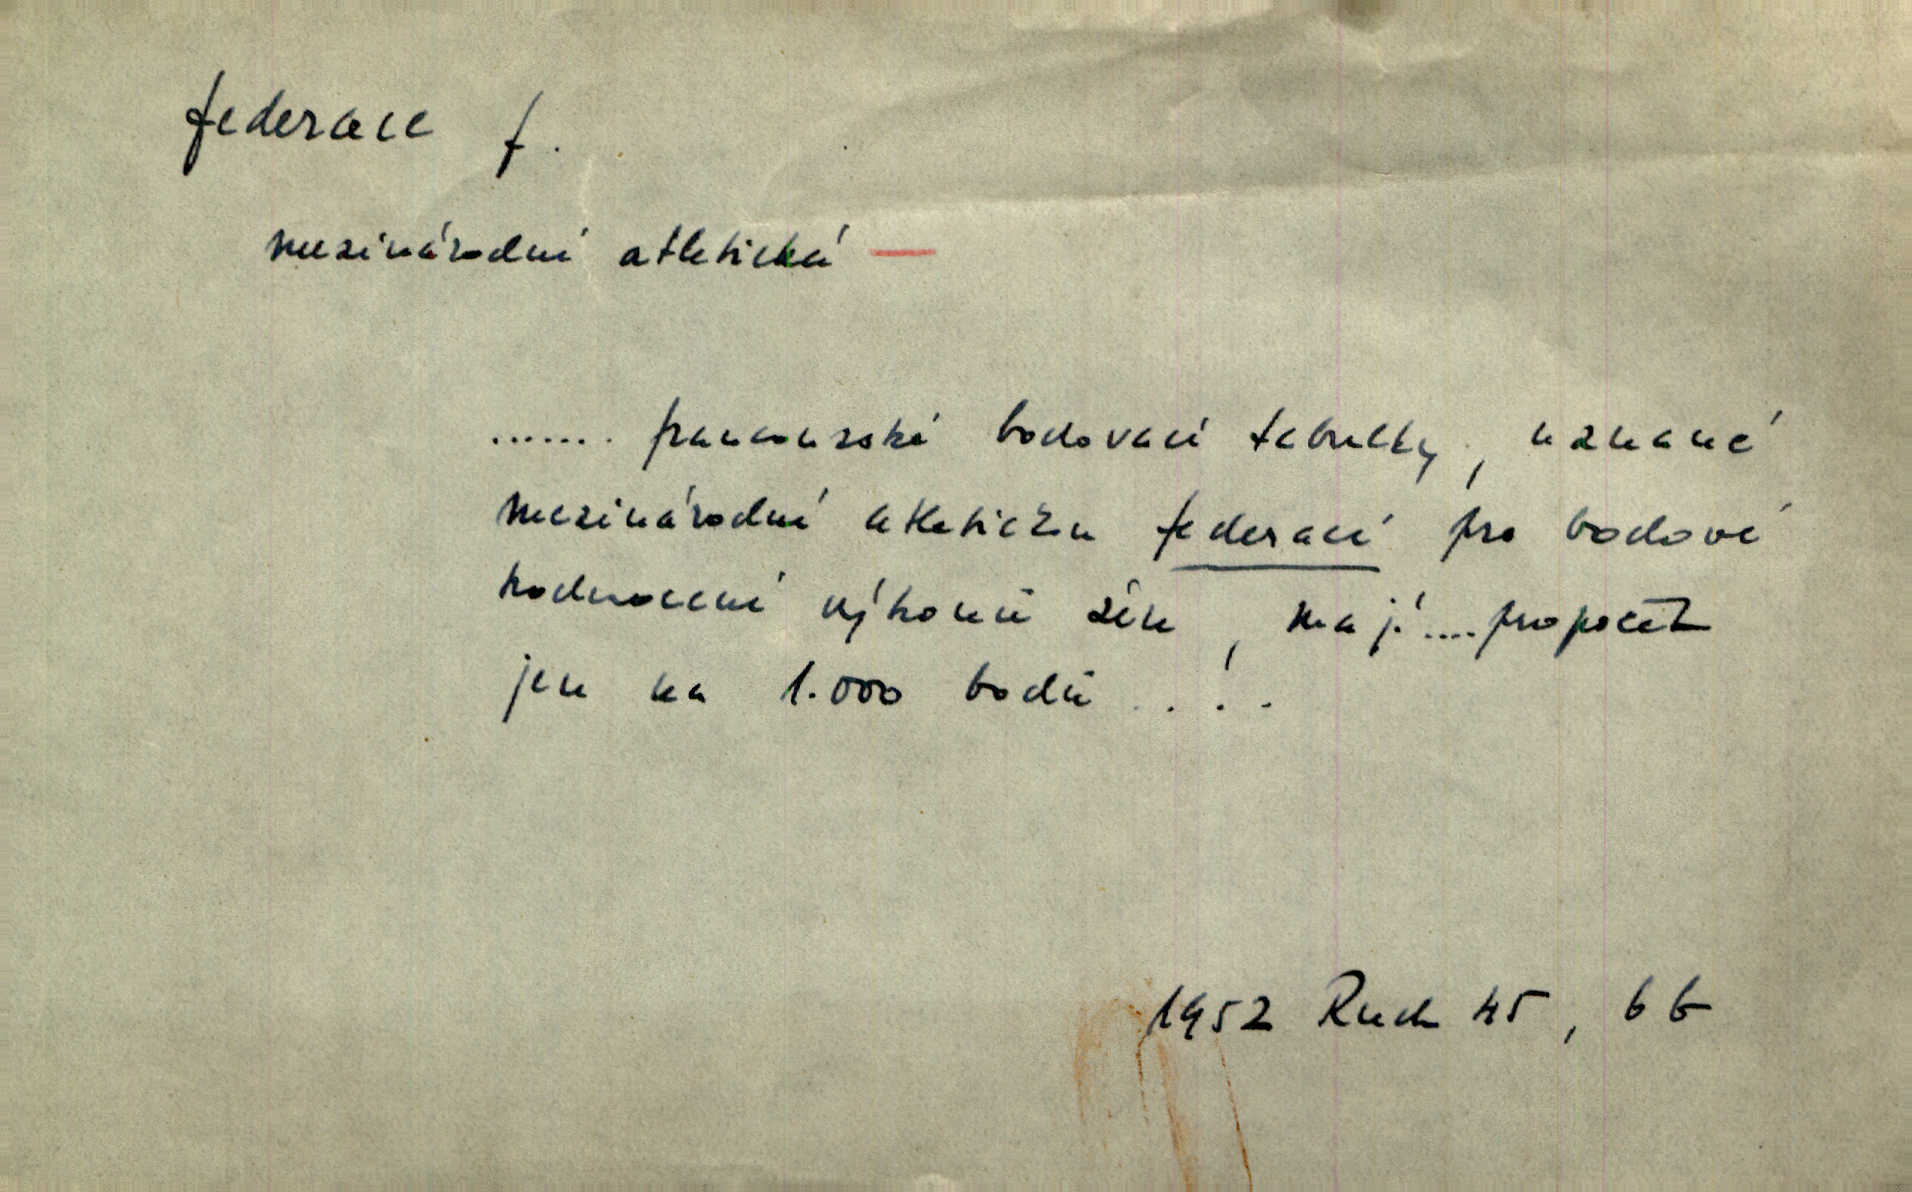 federace f.
mezinárodní atletická —
....... francouzské bodovací tabulky, uznané
mezinárodní atletickou federací pro bodové
hodnocení výkonů žen, mají .... propočet
jen na 1.000 bodů ....
1952 Ruch 45, 6b